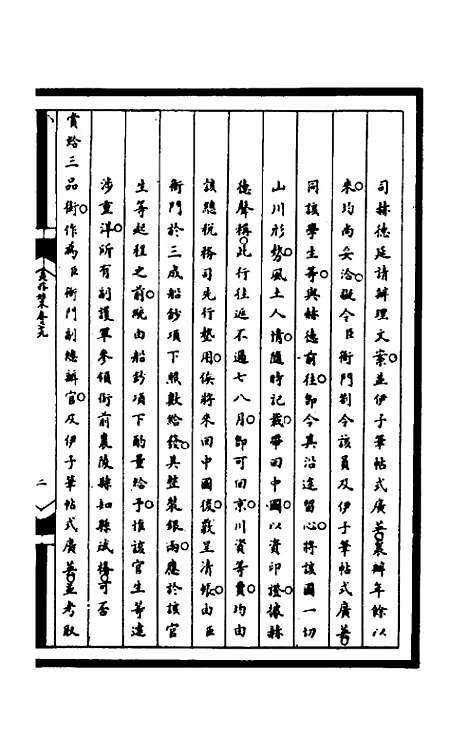 司赫德延請辦理文案並伊子筆帖式廣英襄辦年餘以
來均尚妥洽擬令臣衙門劄令該員及伊子筆帖式廣英
同該學生等與赫德前往卽令其沿途留心將該國一切
山川形勢風土人情隨時記載帶回中國以資印證據赫
德聲稱此行往返不過七八月卽可回京川資等費均由
該總稅務司先行墊用俟將來回中國後載呈清帳由臣
衙門於三成船鈔項下照數給發其整裝銀兩應於該官
生等起程之前酌由船鈔項下酌量給予惟該官生等遠
涉重洋所有副護軍參領銜前襄陵縣知縣斌椿可否
賞給三品銜作為臣衙門副總辦官及伊子筆帖式廣英並考取
二